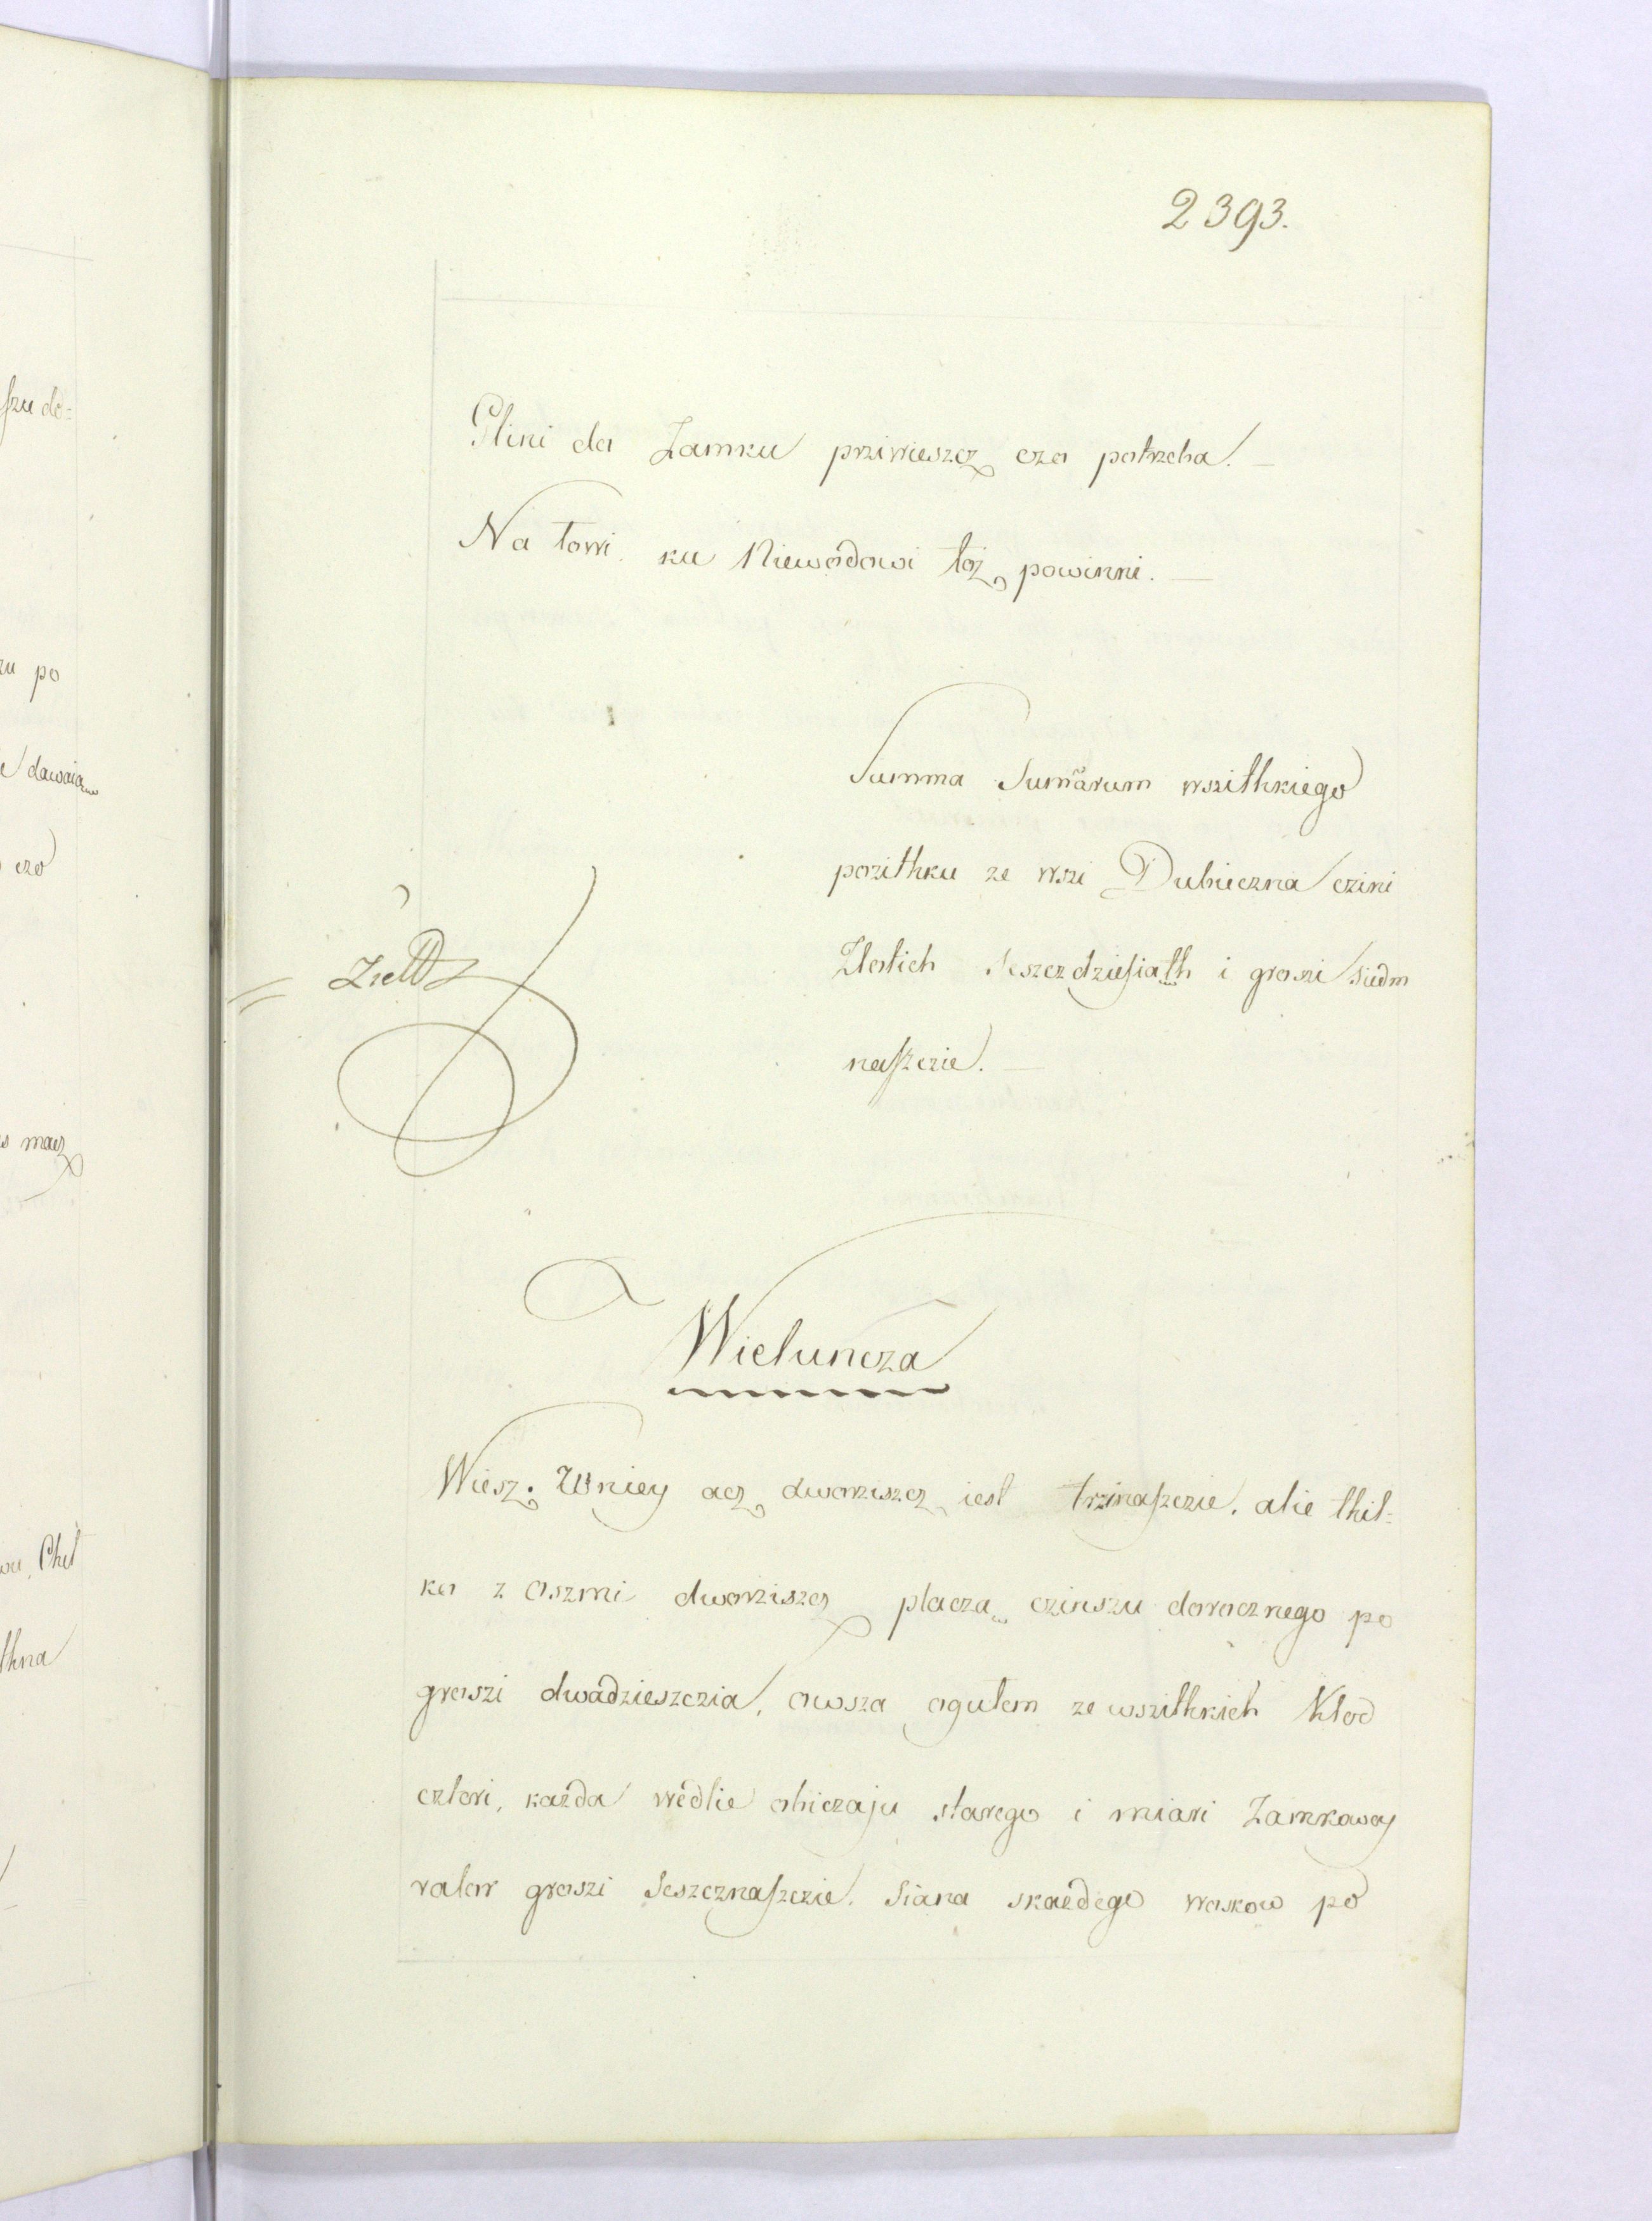 2393.
Glini do Zamku priwiescz czo potrzeba. —
Na łowi ku Niewodowi toz powinni. —
Summa Summarum wszithkiego
pozithku ze wszi Dubieczna czini
Złotich Seszczdziesiąth i groszi Siedm
naszczie. —
Wieluncza
Wiesz. Wniey acz dworziscz iest trzinaszczie. alie thil-
ko z oszmi dworziscz placzą czinszu dorocznego po
groszi dwadzieszczia, owsza ogułem ze wszithkich Kłod
cztori, kazda wedlie obiczaju starego i miari Zamkowey
valor groszi Seszcznaszczie. Siana skazdego woskow po
szu do-
zu po
dawaią
czo
macz
Cheł
thna